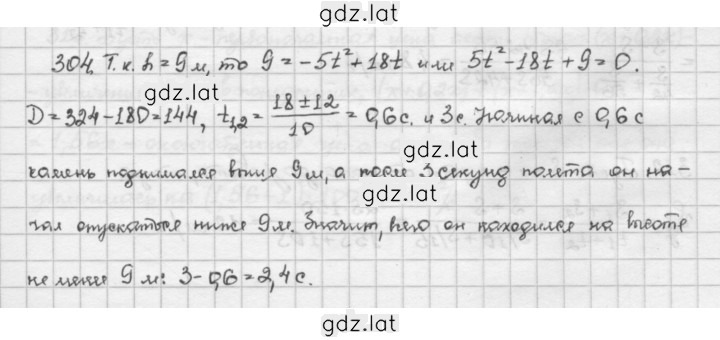 gdz.lat
304. Т. к. h = 9 м, то 9 = -5t² + 18t или 5t² - 18t + 9 = 0.
gdz.lat
D = 324 - 180 = 144, t₁,₂ = (18 ± 12)/10 = 0,6 с. и 3 с. Начиная с 0,6 с
камень поднимался выше 9 м, а после 3 секунд полета он на-
gdz.lat
чал опускаться ниже 9 м. Значит, всего он находился на высоте
не менее 9 м: 3 - 0,6 = 2,4 с.
gdz.lat
gdz.lat